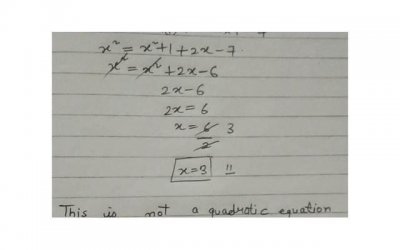 x² = x²+1+2x-7
x² = x²+2x-6
2x-6
2x = 6
x = 6/2 3
x=3 !!
This is not a quadratic equation